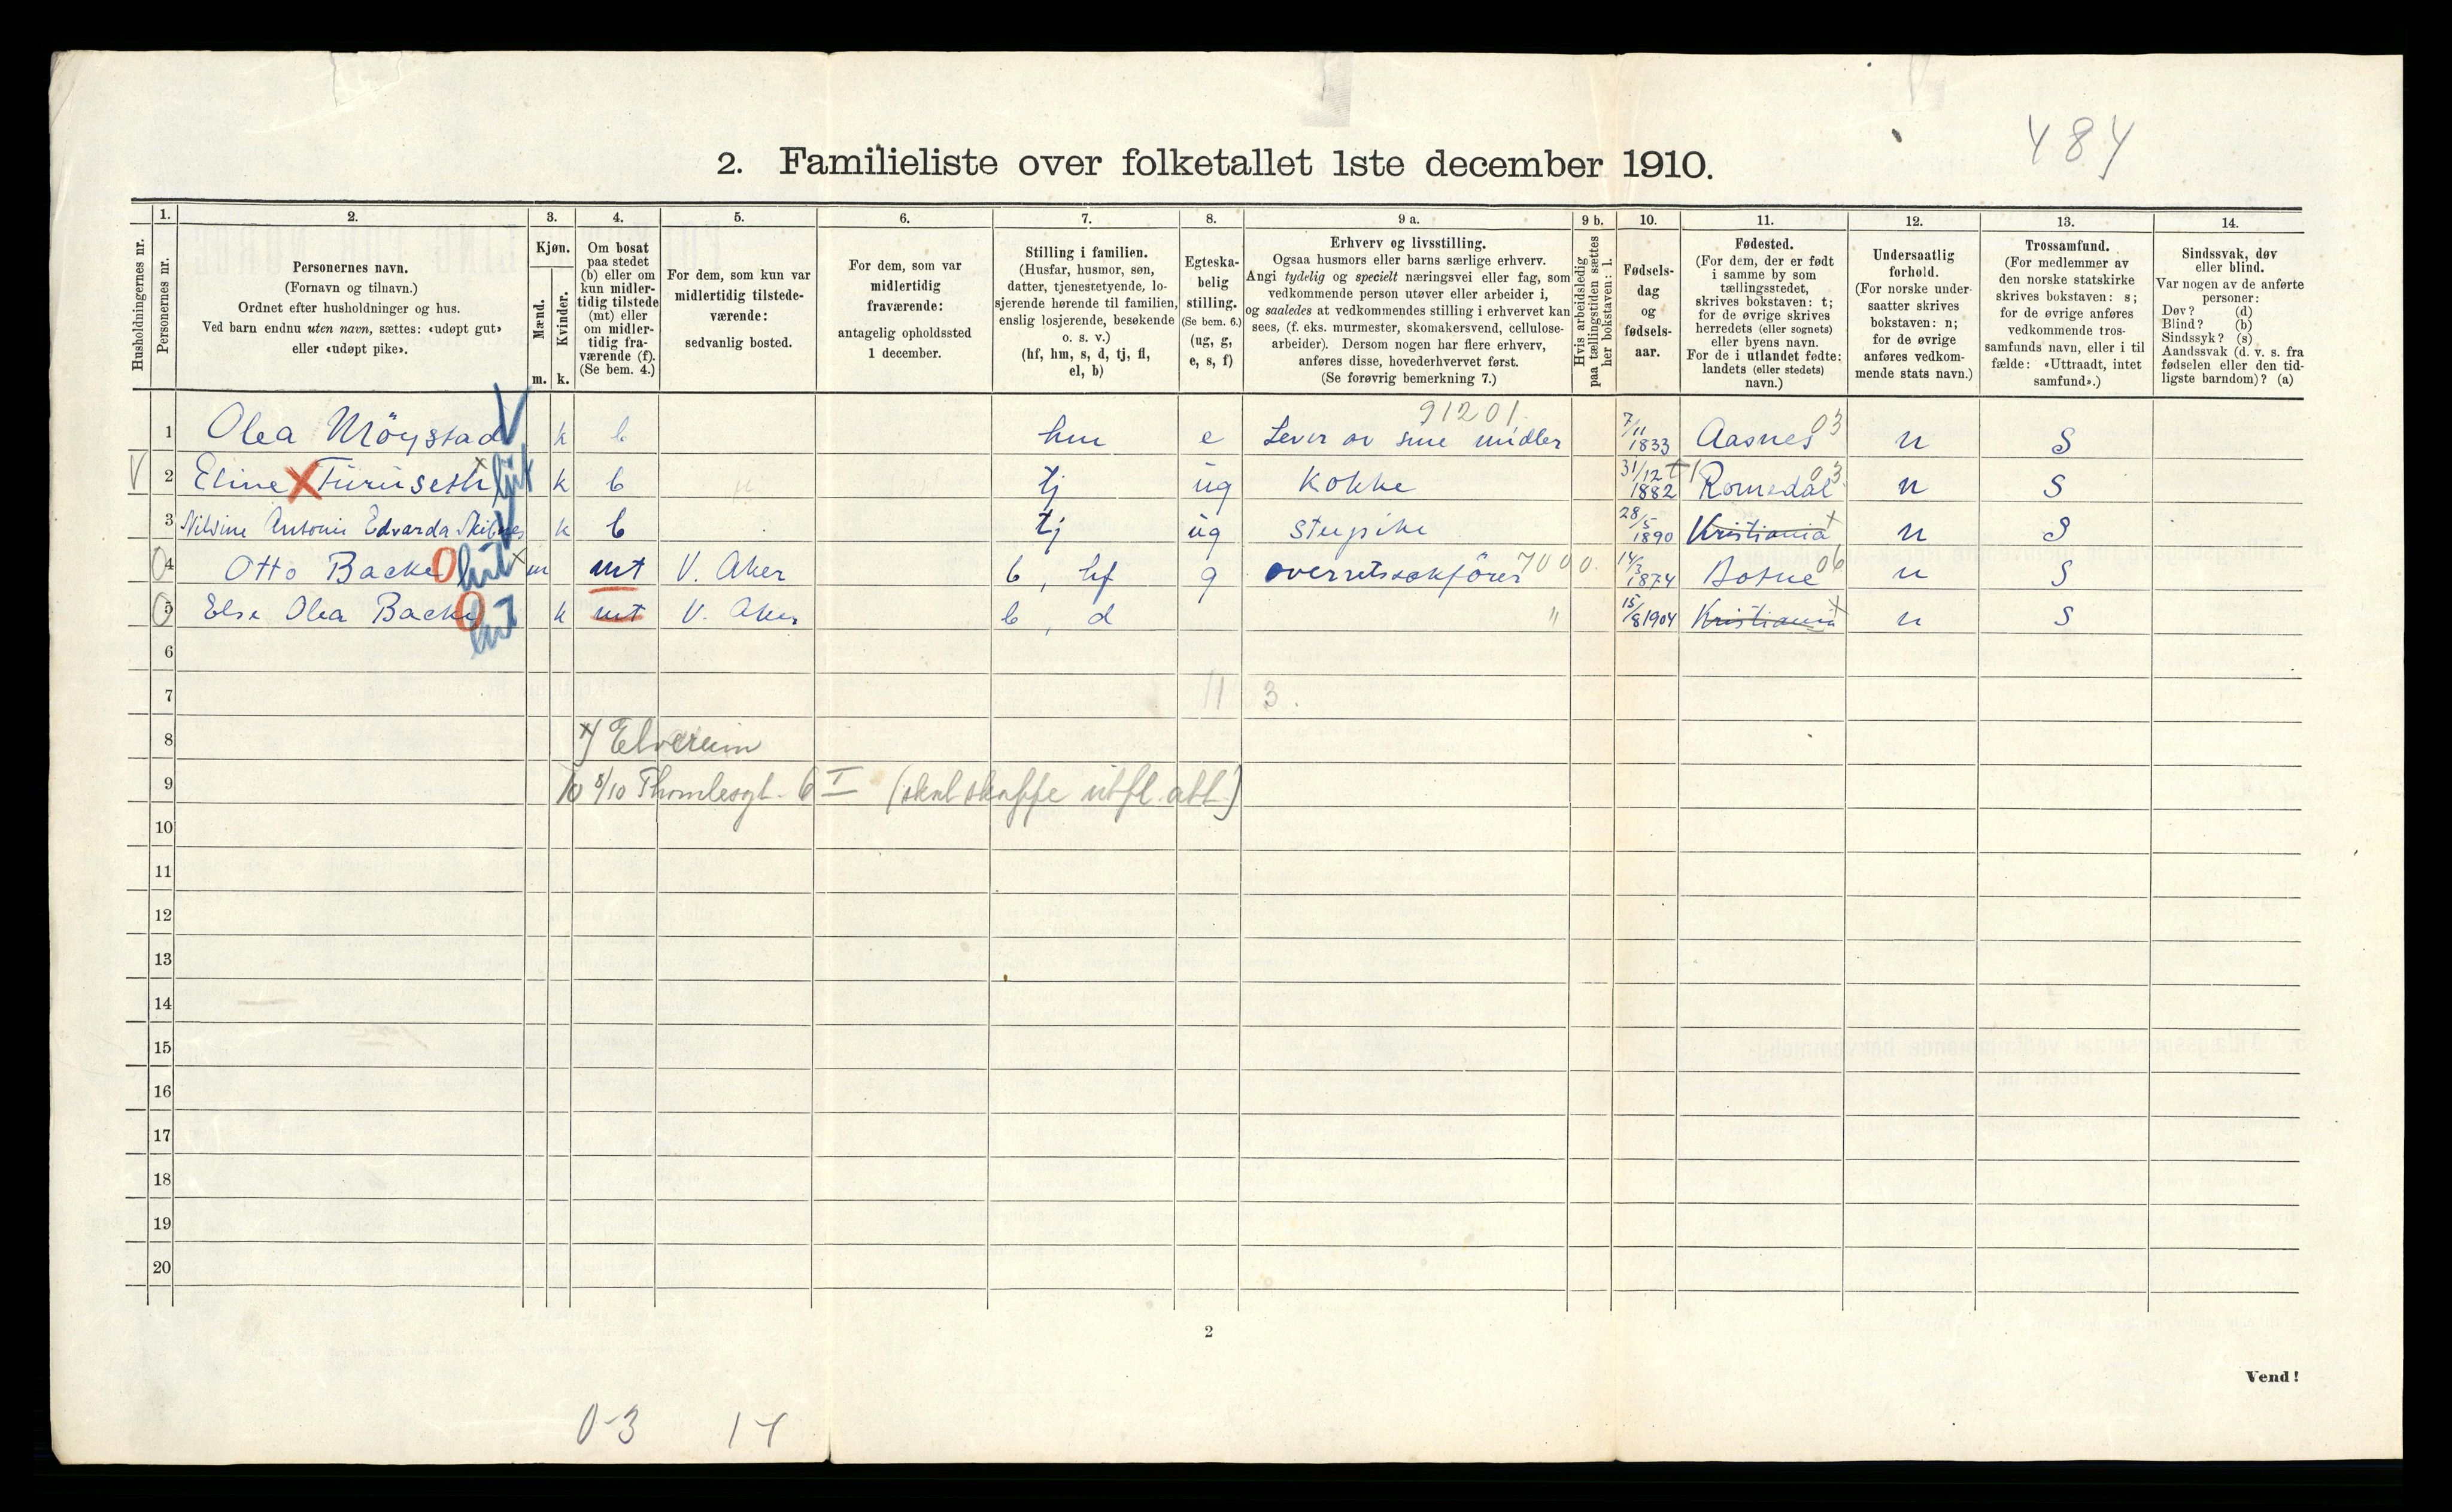 484
2. Familieliste over folketallet 1ste december 1910.
1. 2. 3. 4. 5. 6. 7. 8. 9 a. 9 b. 10. 11. 12. 13. 14.
Husholdningernes nr.
Personernes nr.
Personernes navn.
(Fornavn og tilnavn.)
Ordnet efter husholdninger og hus.
Ved barn endnu uten navn, sættes: «udøpt gut»
eller «udøpt pike».
Kjøn.
Mænd.
Kvinder.
m. k.
Om bosat
paa stedet
(b) eller om
kun midler-
tidig tilstede
(mt) eller
om midler-
tidig fra-
værende (f).
(Se bem. 4.)
For dem, som kun var
midlertidig tilstede-
værende:
sedvanlig bosted.
For dem, som var
midlertidig
fraværende:
antagelig opholdssted
1 december.
Stilling i familien.
(Husfar, husmor, søn,
datter, tjenestetyende, lo-
sjerende hørende til familien,
enslig losjerende, besøkende
o. s. v.)
(hf, hm, s, d, tj, fl,
el, b)
Egteska-
belig
stilling.
(Se bem. 6.)
(ug, g,
e, s, f)
Erhverv og livsstilling.
Ogsaa husmors eller barns særlige erhverv.
Angi tydelig og specielt næringsvei eller fag, som
vedkommende person utøver eller arbeider i,
og saaledes at vedkommendes stilling i erhvervet kan
sees, (f. eks. murmester, skomakersvend, cellulose-
arbeider). Dersom nogen har flere erhverv,
anføres disse, hovederhvervet først.
(Se forøvrig bemerkning 7.)
Hvis arbeidsledig
paa tællingstiden sættes
her bokstaven: l.
Fødsels-
dag
og
fødsels-
aar.
Fødested.
(For dem, der er født
i samme by som
tællingsstedet,
skrives bokstaven: t;
for de øvrige skrives
herredets (eller sognets)
eller byens navn.
For de i utlandet fødte:
landets (eller stedets)
navn.)
Undersaatlig
forhold.
(For norske under-
saatter skrives
bokstaven: n;
for de øvrige
anføres vedkom-
mende stats navn.)
Trossamfund.
(For medlemmer av
den norske statskirke
skrives bokstaven: s;
for de øvrige anføres
vedkommende tros-
samfunds navn, eller i til
fælde: «Uttraadt, intet
samfund».)
Sindssvak, døv
eller blind.
Var nogen av de anførte
personer:
Døv? (d)
Blind? (b)
Sindssyk? (s)
Aandssvak (d. v. s. fra
fødselen eller den tid-
ligste barndom)? (a)
91201
1 Olea Möystad k b hm e Lever av sine midler 7/11 1833 Aasnes 03 n S
2 Eline Furuseth k b tj ug Kokke 31/12 1882 Romedal 03 n S
3 Antonie Edvarda k b tj ug Stuepike 28/5 1890 Kristiania n S
4 Otto Backe m mt V. Aker b, hf g overretssakfører 7000. 14/3 1874 Botne 06 n S
5 Else Olea Backe k mt V. Aker b, d " 15/8 1904 Kristiania n S
6
7 11 3.
8 x) Elverum
9 8/10 Thomlesgt. 6 I (skal skaffe utfl. att.)
10
11
12
13
14
15
16
17
18
19
20
2
Vend!
0-3 14